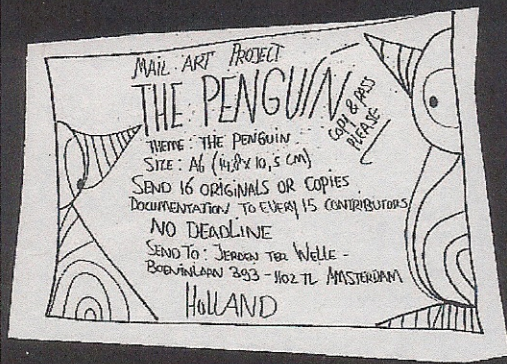 MAIL ART PROJECT
THE PENGUIN
COPY & PASS
PLEASE
THEME: THE PENGUIN
SIZE: A6 (14,8 x 10,5 CM)
SEND 16 ORIGINALS OR COPIES
DOCUMENTATION TO EVERY 15 CONTRIBUTORS
NO DEADLINE
SEND TO: JEROEN TER WELLE -
393 - 1102 TL AMSTERDAM
HOLLAND